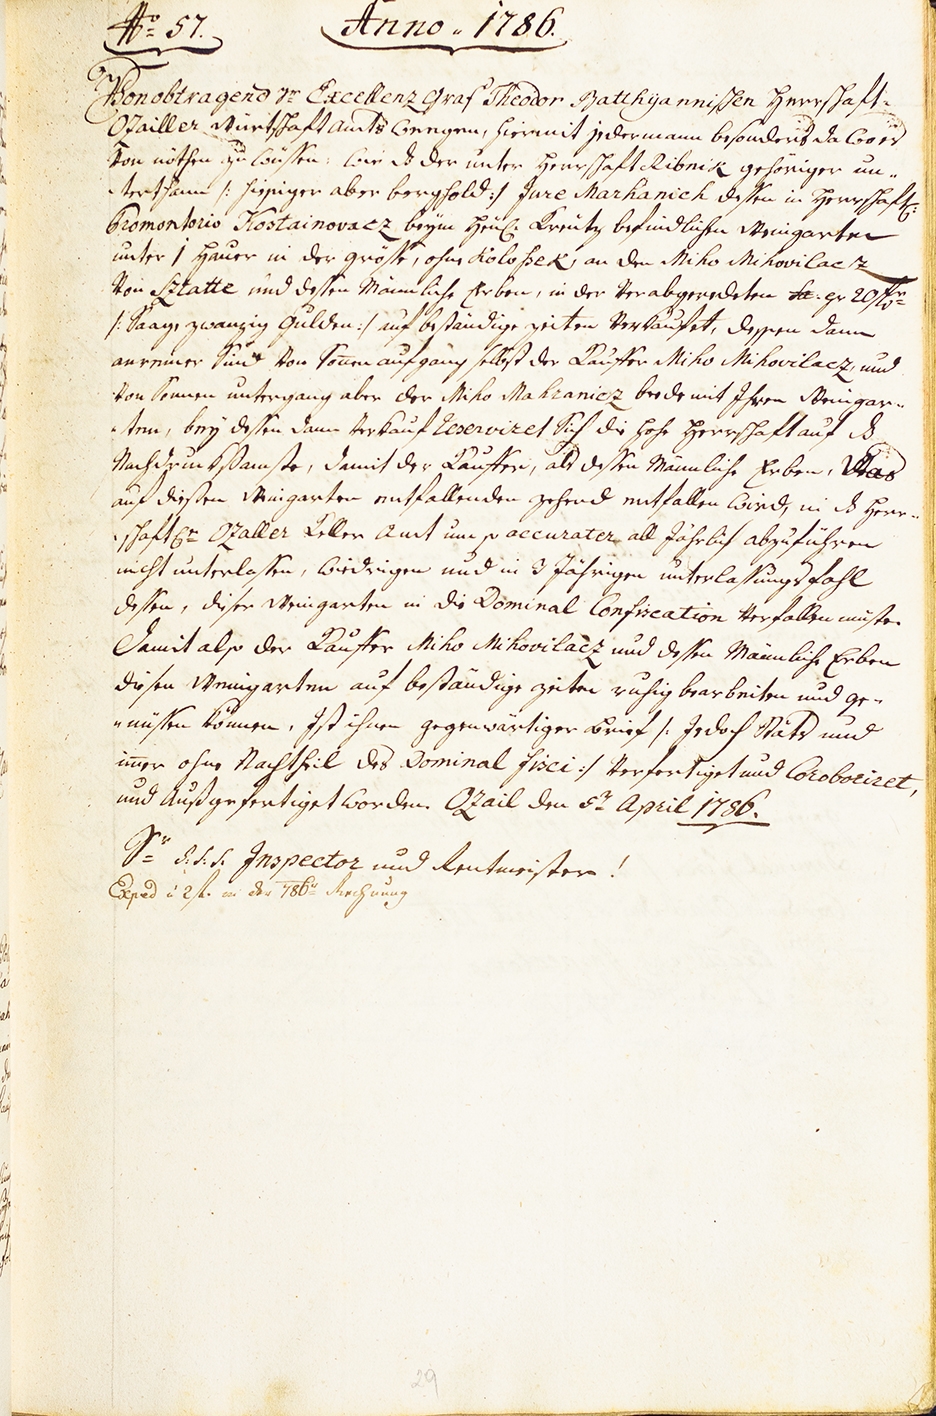 No 57. Anno 1786.
Von obtragend Sr Excellenz Graf Theodor Batthyannischen Herrschaft
Ozailler Würtschaft Amts weegen, hiemit jedermann besonders da wo es
Von nöthen zu wüssen: wie daß der unter Herrschaft Ribnik gehöriger un-
terthann /: hiesiger aber berghold :/ Jure Marhanich dessen in Herrschaftl:
Promontorio Kostainovacz beym Heil: Kreütz befindlichen Weingarten
unter 1 Hauer in der grösse, ohne Kolossek, an den Miho Mihovilacz
Von Sztatte und dessen Männliche Erben, in der Verabgeredeten pr 20 f
/: Saage zwanzig Gulden :/ auf beständige zeiten Verkaufet, dessen dann
anreiner Sind Von Sonnen aufgang selbst der Kauffer Miho Mihovilacz, und
Von Sonnen untergang aber der Miho Mahranicz beede mit Ihren Weingar-
ten, bey dessen dann Verkauf reserviret Sich die hohe Herrschaft auf das
Nachdrucksamste, damit der Kauffer, als dessen Männliche Erben, Was
auf diesen Weingarten entfallenden zehend entfallen wird, in das Herr-
schaftl: Ozailler Keller Amt um so accurater all Jährlich abzuführen
nicht unterlassen, wiedrigen und in 3 Jährigen unterlassungs fahl
dessen, dieser Weingarten in die Dominal Confiscation Verfallen müste.
Damit also der Kauffer Miho Mihovilacz und dessen Männliche Erben
diesen Weingarten auf beständige zeiten ruhig bearbeiten und ge-
nüssen können, Ist ihnen gegenwärtiger Brief /: Jedoch Stäts und
imer ohne Nachtheil des Dominal Fisci :/ Verfertiget und Coroboriret,
und Außgefertiget worden. Ozail den 5t April 1786.
Sr L.S.S. Inspector und Rentmeister!
Exped à 2 f. in der 786er Rechnung
29